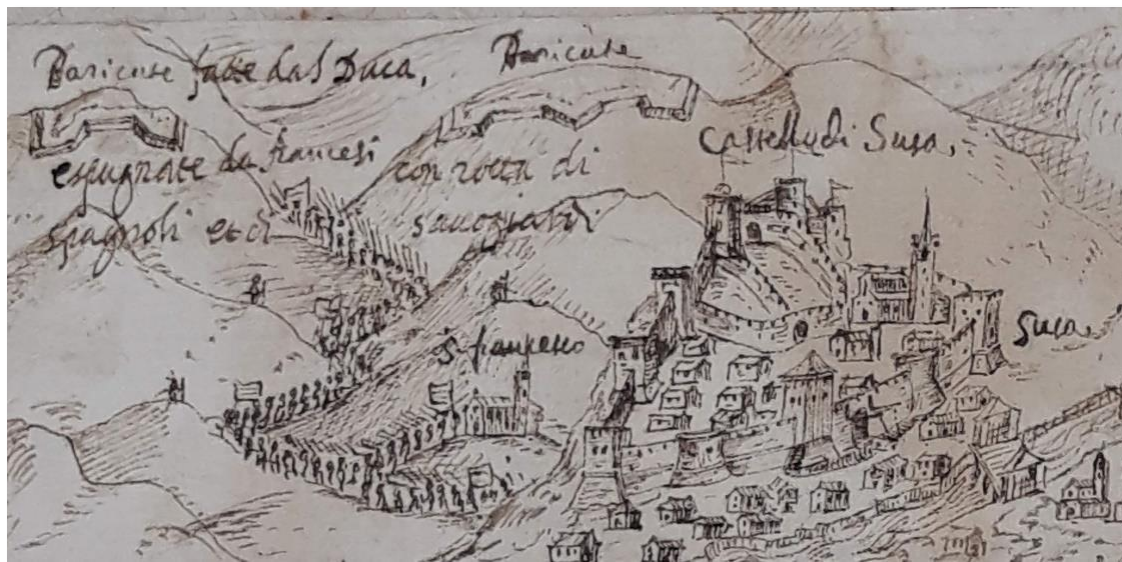 Baricate fatte dal Duca, Baricate
espugnate da francesi con rotta di
spagnoli et di savogiardi
Castello di Susa,
S. francesco
Susa,